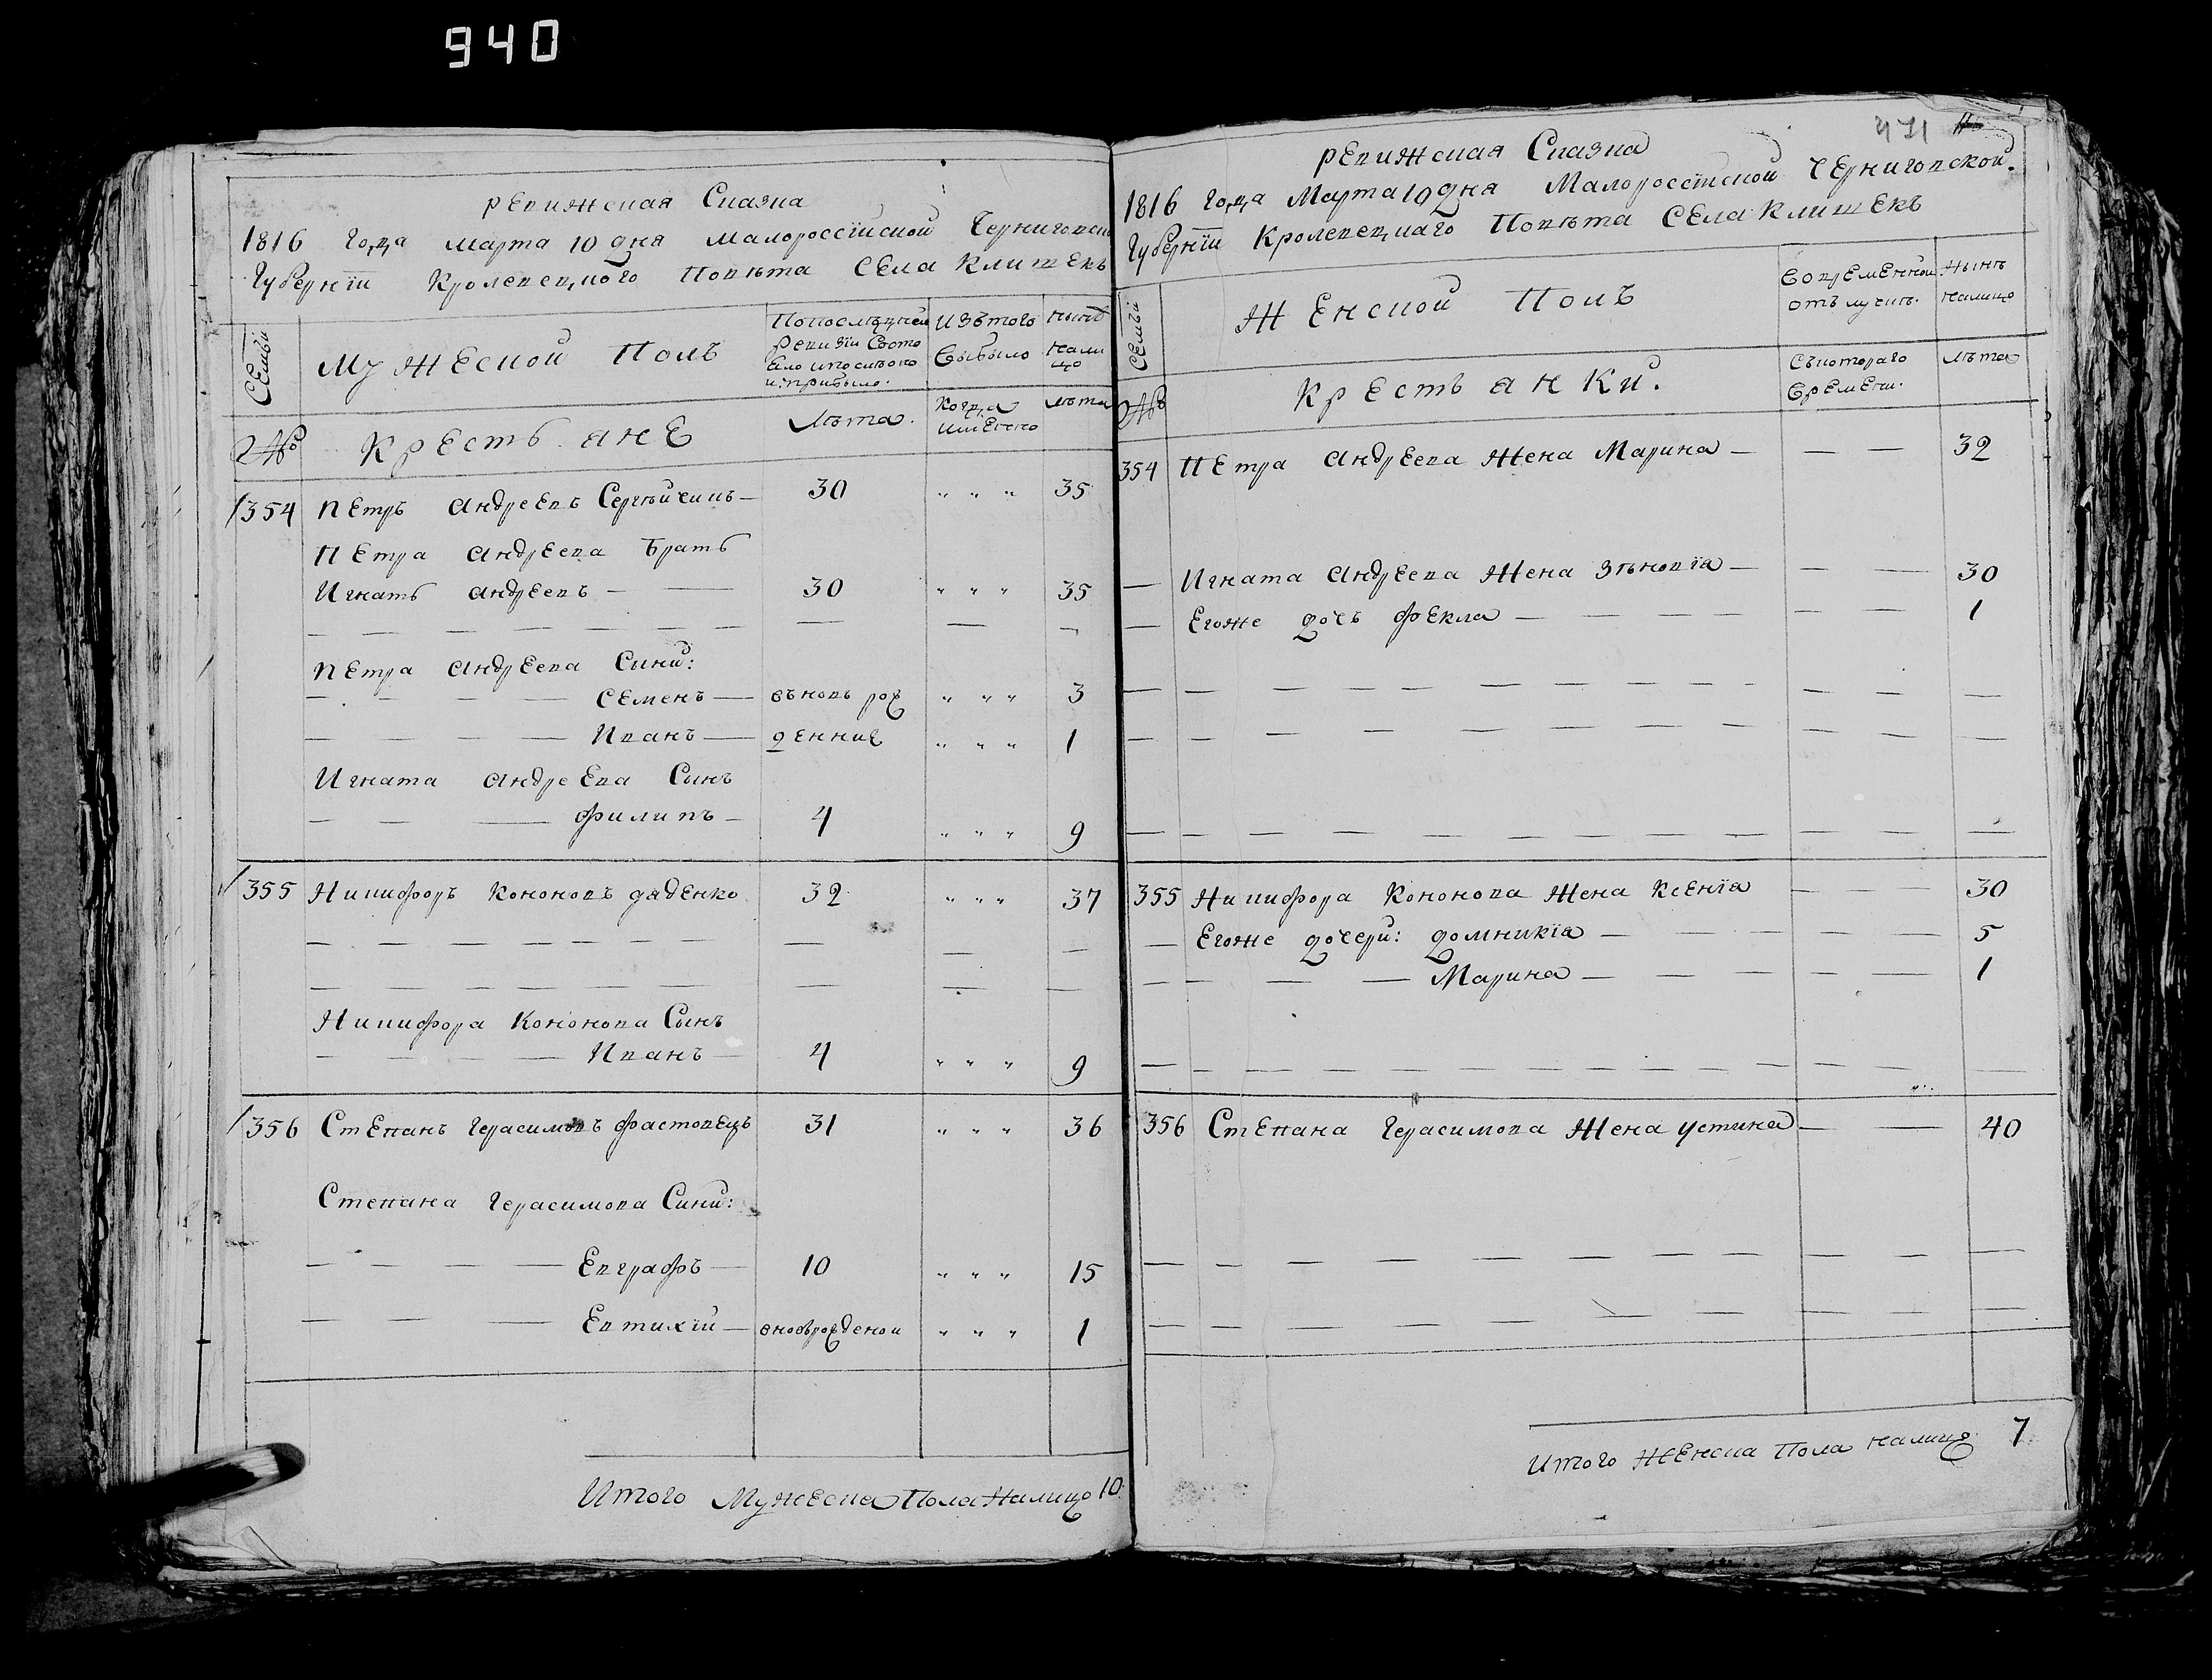 940
ревижская Сказка
1816 года марта 10 дня Малороссїйской Черниговской
Губернїи Кролевецкого Повѣта Села Клишекъ
Семьи
Мужеской Полъ
По последней ревизїи состояло и после оно и:прибыло.
Изътого выбыло
Нынѣ налицо
№
Крестьяне
Лѣта.
Когда именно
лѣта
354 Петръ Андреевъ Сергѣйчикъ — 30 " " " 35
Петра Андреева Братъ
Игнатъ Андреевъ — 30 " " " 35
Петра Андреева Сини:
Семенъ — въновь рож " " " 3
Иванъ — денние " " " 1
Игната Андреева Сынъ
Филипъ — 4 " " " 9
355 Никифоръ Кононовъ дяденко 32 " " " 37
Никифора Кононова Сынъ
Иванъ — 4 " " " 9
356 Степанъ Герасимовъ Фастовецъ 31 " " " 36
Степана Герасимова Сини:
Евграфъ — 10 " " " 15
Евтихїй — вновьрожденой " " " 1
Итого Мужеска Пола Налицо 10
471
ревижская Сказка
1816 года Марта 10 дня Малороссїйской Черниговской
Губернїи Кролевецкаго Повѣта Села Клишекъ
Семьи
Женской Полъ
Вовременной отълучкѣ.
Нынѣ налицо
№
Крестьянки.
Съкотораго времени.
лѣта
354 Петра Андреева Жена Марина — 32
Игната Андреева Жена Зѣновїа — 30
Егоже дочь Фекла — 1
355 Никифора Кононова Жена Ксенїа 30
Егоже дочери: Домникїа — 5
Марина — 1
356 Степана Герасимова Жена Устина 40
Итого Женска Пола налицо 7